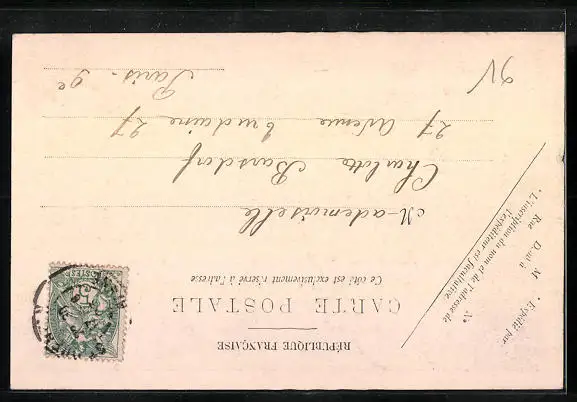 RÉPUBLIQUE FRANÇAISE
CARTE POSTALE
Ce côté est exclusivement réservé à l'adresse
* Expédié par
M
Dmt à
Rue
N°
* L'inscription du nom et de l'adresse de
l'expéditeur est facultative.
M-ademoiselle
Charlotte Barsdorf
27 Avenue Trudaine 27
Paris-9e
POSTES